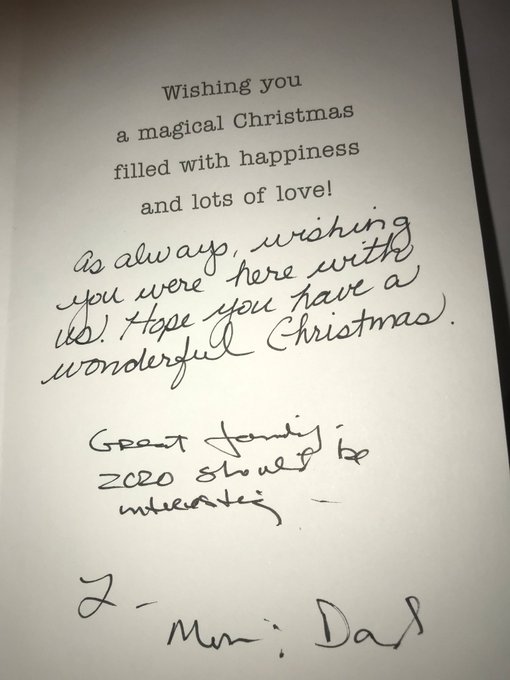 Wishing you
a magical Christmas
filled with happiness
and lots of love!
As always, wishing
you were here with
us. Hope you have a
wonderful Christmas.
Great family.
2020 should be
interesting -
L -
Mom & Dad